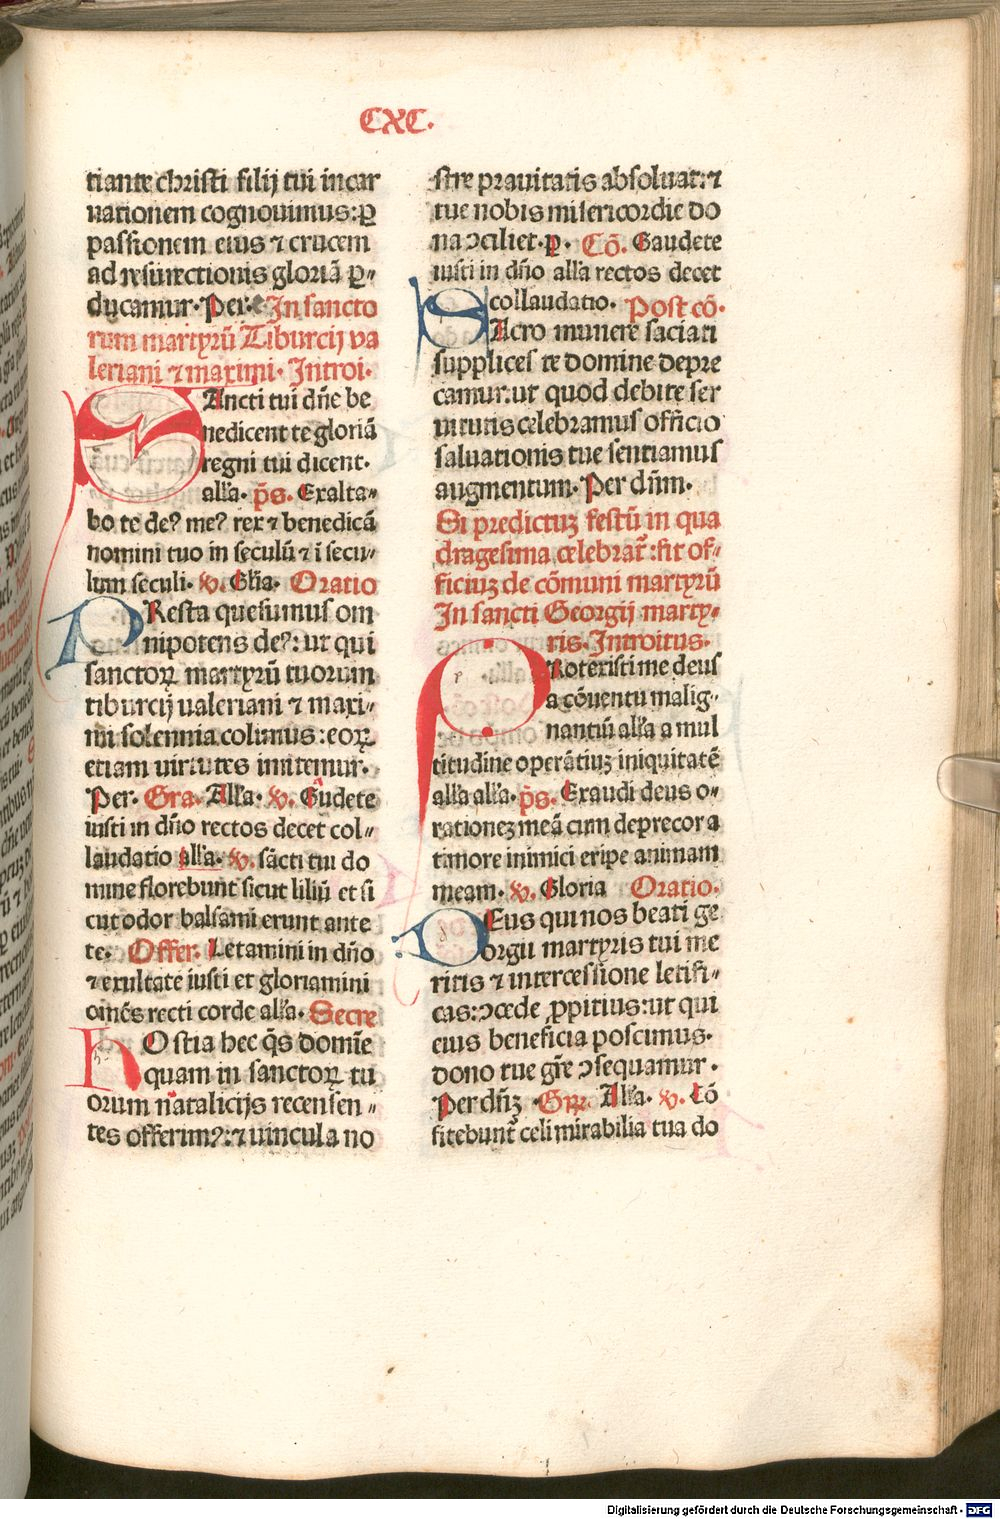 CXC.
tiante christi filij tui incar
nationem cognouimus:ꝑ
passionem eius ⁊ crucem
ad resurrectionis gloriã ꝑ-
ducamur. Per. In sancto
rum martyrũ Tiburcij va
leriani ⁊ maximi. Introi.
SAncti tui dñe be
nedicent te gloriã
regni tui dicent.
alľa. p̄s. Exalta-
bo te deꝰ meꝰ rex ⁊ benedicã
nomini tuo in seculũ ⁊ ĩ secu-
lum seculi. ℣. Gľia. Oratio
PResta quesumus om
nipotens deꝰ: ut qui
sanctoꝝ martyrũ tuorum
tiburcij ualeriani ⁊ maxi-
mi solennia colimus: eoꝝ
etiam uirtutes imitemur.
Per. Gra. Alľa. ℣. Gũdete
iusti in dño rectos decet col-
laudatio alľa. ℣. sãcti tui do
mine florebunt sicut liliũ et si
cut odor balsami erunt ante
te. Offer. Letamini in dño
⁊ exultate iusti et gloriamini
om̃es recti corde alľa. Secre
HOstia hec q̃s domĩe
quam in sanctoꝝ tu
orum natalicijs recensen-
tes offerimꝰ: ⁊ uincula no
stre prauitatis absoluat: ⁊
tue nobis misericordie do
na ↄciliet. p. Cõ. Gaudete
iusti in dño alľa rectos decet
collaudatio. Post cõ.
SAcro munere saciati
supplices te domine depre
camur: ut quod debite ser
uitutis celebramus officio
saluationis tue sentiamus
augmentum. Per dñm.
Si predictuꝫ festũ in qua
dragesima celebrat̃: fit of-
ficiuꝫ de cõmuni martyrũ
In sancti Georgij marty-
ris. Introitus.
PRotexisti me deus
a cõuentu malig-
nantiũ alľa a mul
titudine operãtiuꝫ iniquitatẽ
alľa alľa. p̄s. Exaudi deus o-
rationeꝫ meã cum deprecor a
timore inimici eripe animam
meam. ℣. Gloria Oratio.
DEus qui nos beati ge
orgii martyris tui me
ritis ⁊ intercessione letifi-
cas: ↄcede ꝓpitius: ut qui
eius beneficia poscimus.
dono tue gr̃e ↄsequamur.
Per dñꝫ. Gra. Alľa. ℣. Cõ
fitebunt̃ celi mirabilia tua do
Digitalisierung gefördert durch die Deutsche Forschungsgemeinschaft - DFG